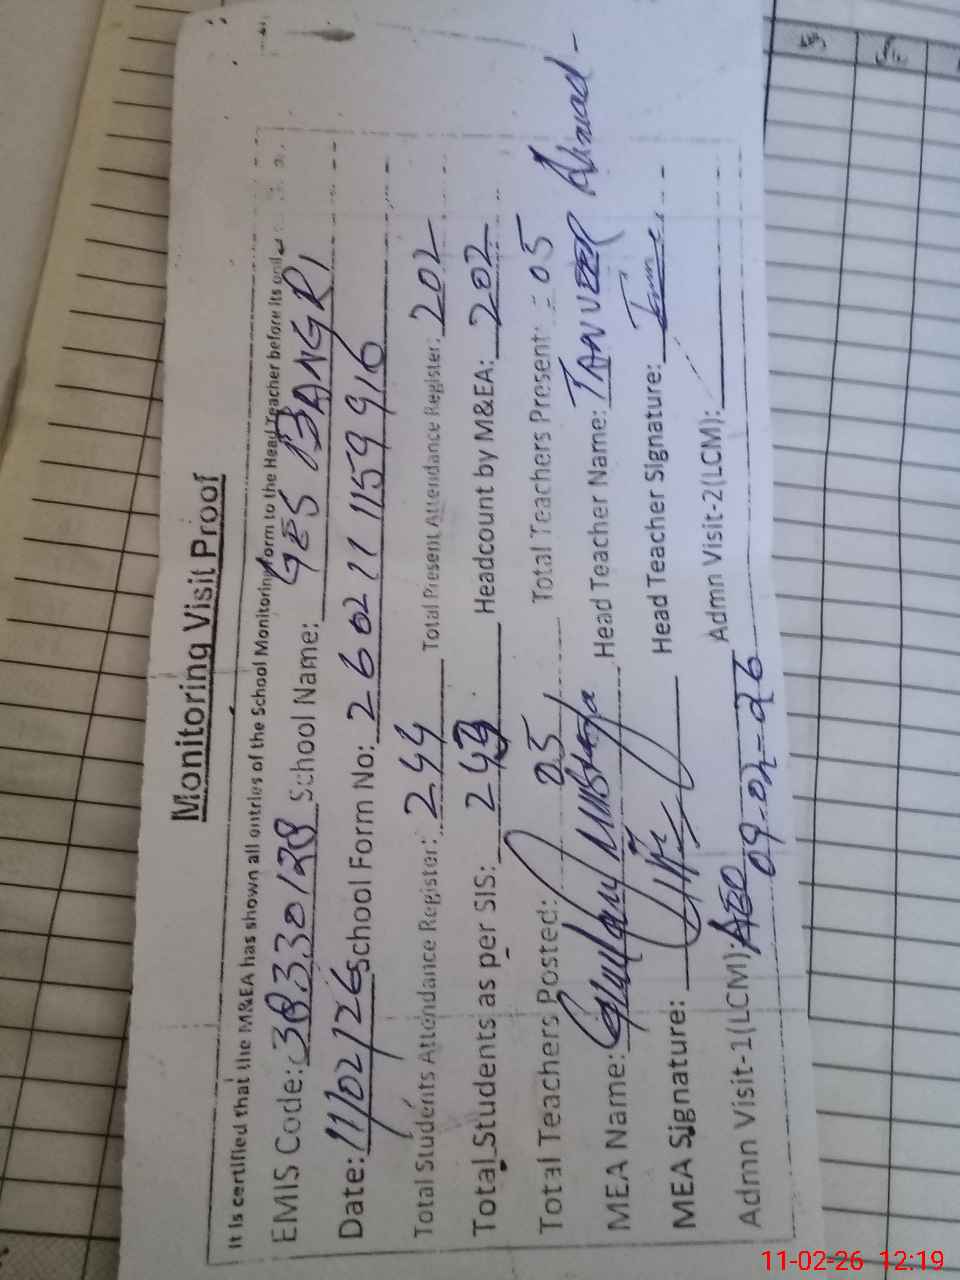 Monitoring Visit Proof
It is certified that the M&EA has shown all entries of the School Monitoring Form to the Head Teacher before its
EMIS Code: 38330128 School Name: GES BANGRI
Date: 11/02/26 School Form No: 260211159916
Total Students Attendance Register: 244 Total Present Attendance Register: 202
Total Students as per SIS: Headcount by M&EA: 202
Total Teachers Posted: 05 Total Teachers Present: 05
MEA Name: Ghulam Mustafa Head Teacher Name: TANVEER Ahmad
MEA Signature: Head Teacher Signature:
Admn Visit-1(LCM): AEO Admn Visit-2(LCM):
09-02-26
11-02-26 12:19